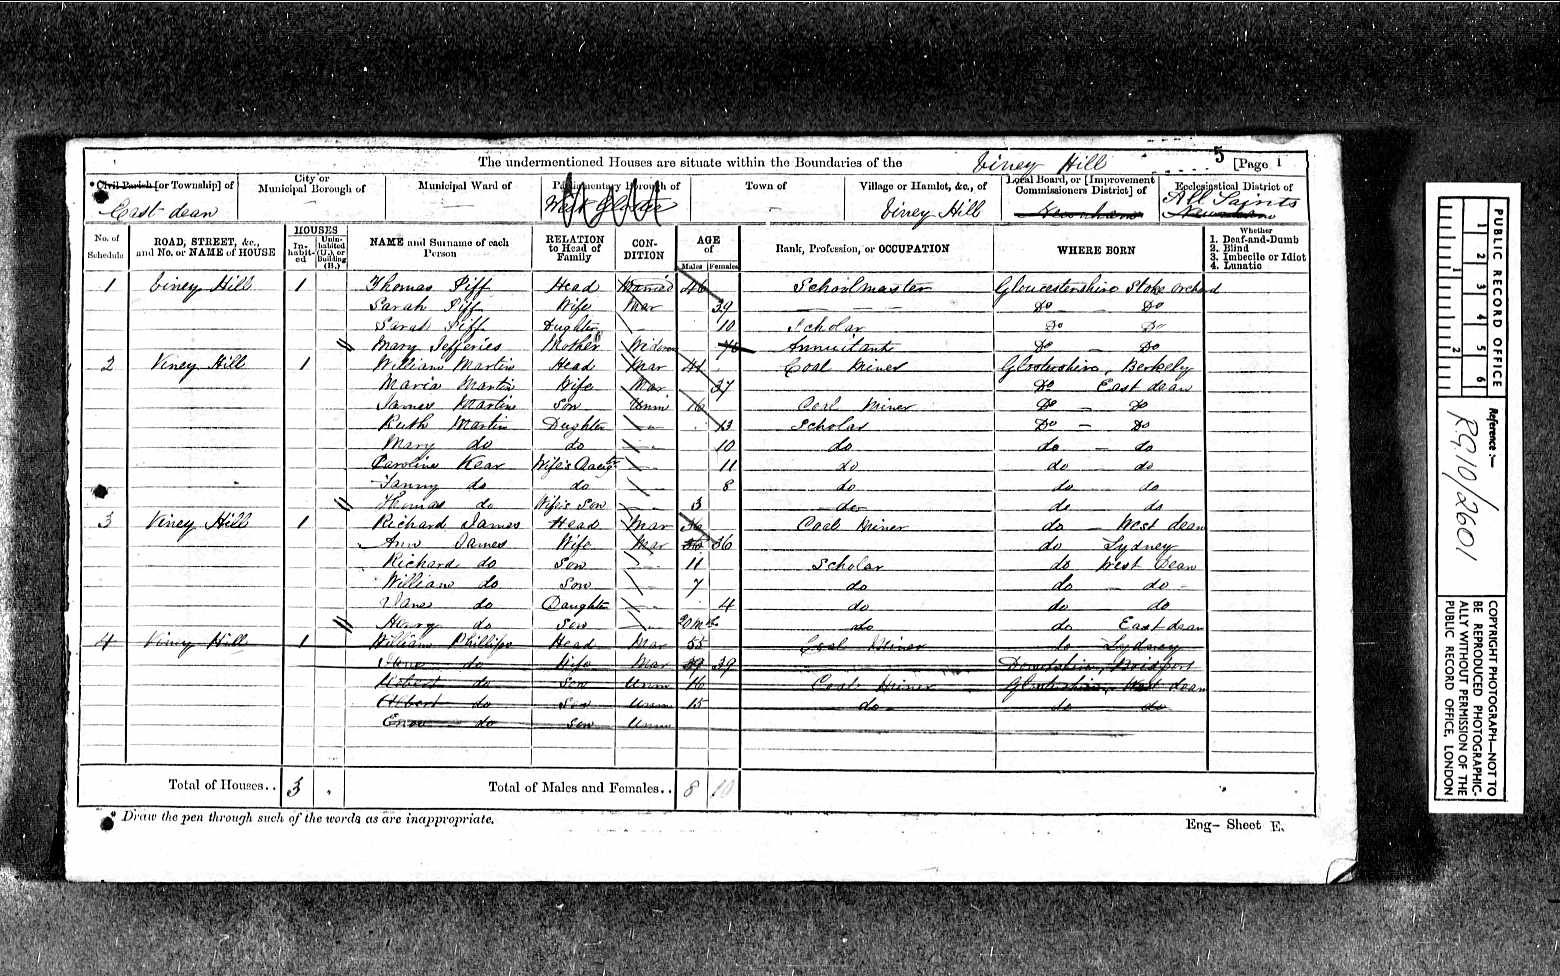 The undermentioned Houses are situate within the Boundaries of the Viney Hill 5 [Page 1
Civil Parish [or Township] of East dean
City or Municipal Borough of
Municipal Ward of
Parliamentary Borough of
Town of
Village or Hamlet, &c., of Viney Hill
Local Board, or [Improvement Commissioners District] of Newnham
Ecclesiastical District of All Saints Newnham
No. of Schedule
ROAD, STREET, &c., and No. or NAME of HOUSE
HOUSES
In-habit-ed
Unin-habited (U.), or Building (B.)
NAME and Surname of each Person
RELATION to Head of Family
CON-DITION
AGE of
Males Females
Rank, Profession, or OCCUPATION
WHERE BORN
Whether
1. Deaf-and-Dumb
2. Blind
3. Imbecile or Idiot
4. Lunatic
1 Viney Hill 1 Thomas Piff Head Married 46 Schoolmaster Gloucestershire Stoke Orchard
Sarah Piff Wife Mar 39 Do Do
Sarah Piff Dughter 10 Scholar Do Do
Mary Jefferies Mother Widow Annuitant Do Do
2 Viney Hill 1 William Martin Head Mar 41 Coal Miner Glostershire, Berkely
Maria Martin Wife Mar 37 Do East dean
James Martin Son Unm 16 Coal Miner Do Do
Ruth Martin Dughter 13 Scholar Do Do
Mary do do 10 do do do
Caroline Kear Wife's Daugtr 11 do do do
Fanny do do 8 do do do
Thomas do Wife's Son 3 do do do
3 Viney Hill 1 Richard James Head Mar 36 Coal Miner do West dean
Ann James Wife Mar 36 do Lydney
Richard do Son 11 Scholar do West Dean
William do Son 7 do do do
Jane do Daughter 4 do do do
Henry do Son do do East dean
4 Viney Hill 1 William Phillips Head Mar 55 Coal Miner do Lydney
do Wife Mar 39 39 Dorsetshire, Bridport
Robert do Son Unm 16 Coal Miner Glostershire, West dean
Albert do Son Unm 15 do do do
Enos do Son Unm
Total of Houses.. 3
Total of Males and Females.. 8 10
* Draw the pen through such of the words as are inappropriate.
Eng- Sheet E.
PUBLIC RECORD OFFICE
1 2 3 4 5 6
1 2
Reference :-
RG10/2601
COPYRIGHT PHOTOGRAPH—NOT TO BE REPRODUCED PHOTOGRAPHIC-ALLY WITHOUT PERMISSION OF THE PUBLIC RECORD OFFICE, LONDON